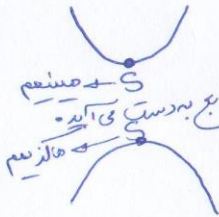 S → مینیمم
بع به دست می آید.
S → ماکزیمم